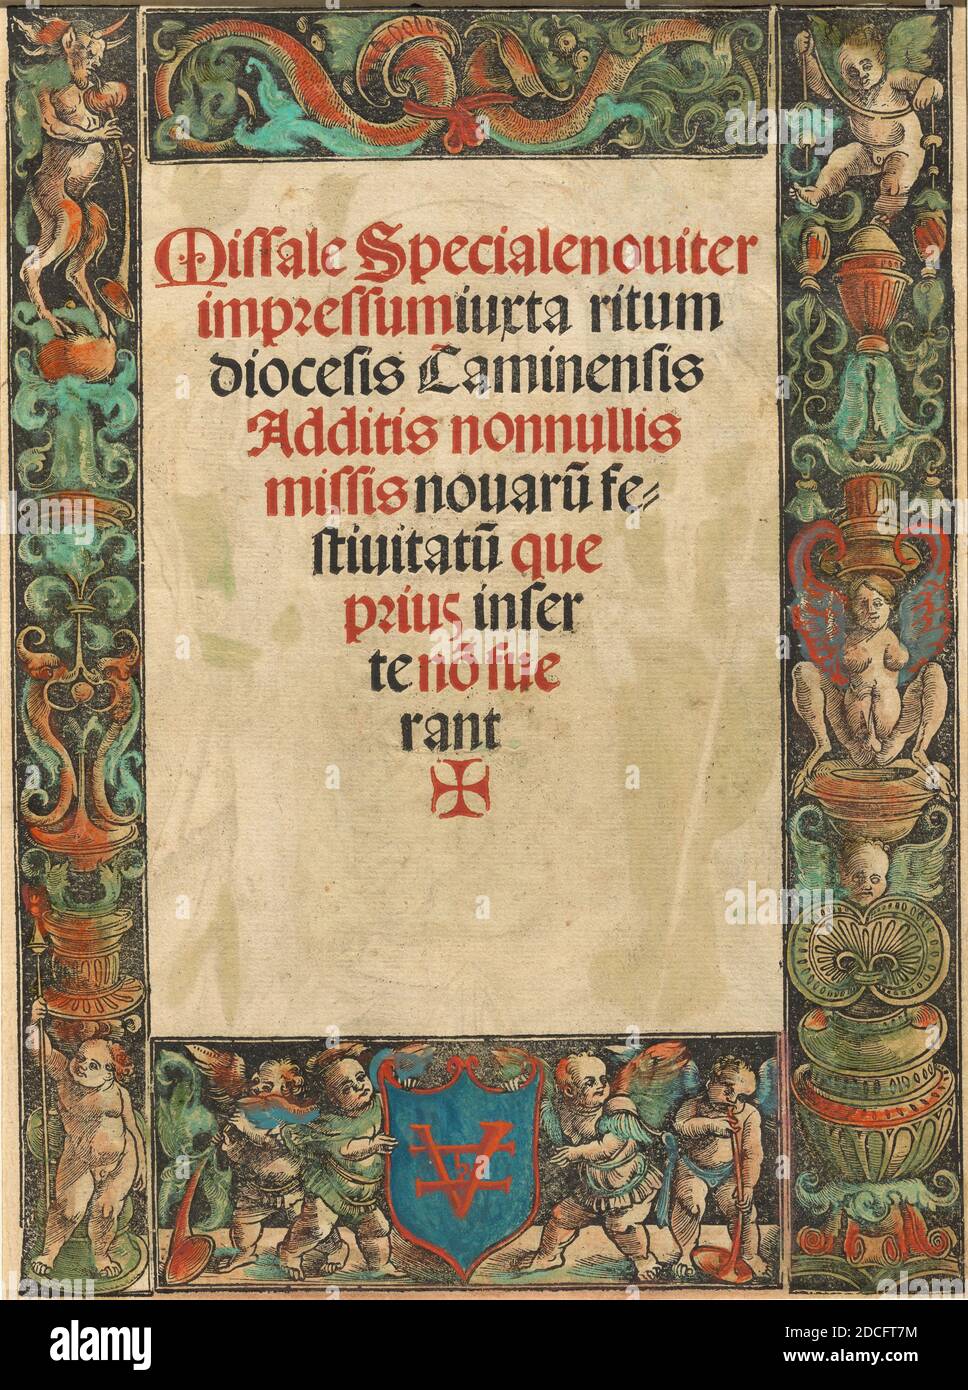 Missale Specialenouiter
impressumiuxta ritum
diocesis Caminensis
Additis nonnullis
missis nouarū fe⸗
stiuitatū que
prius inser
te nō fue
rant
a
alamy
Image ID: 2DCFT7M
www.alamy.com